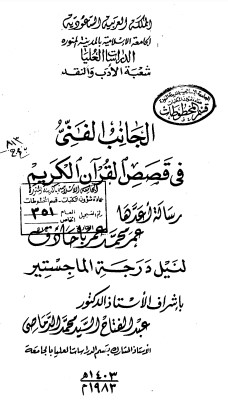 المملكة العربية السعودية
الجامعة الإسلامية بالمدينة المنورة
الدراسات العليا
شعبة الأدب والنقد
الجانب الفني
في قصص القرآن الكريم
رسالة أعدها
عمر محمد عمر باحاذق
٣٥١
لنيل درجة الماجستير
بإشراف الأستاذ الدكتور
عبد الفتاح السيد محمد الدماصي
الأستاذ المشارك بقسم الدراسات العليا بالجامعة
١٤٠٣هـ
١٩٨٣م